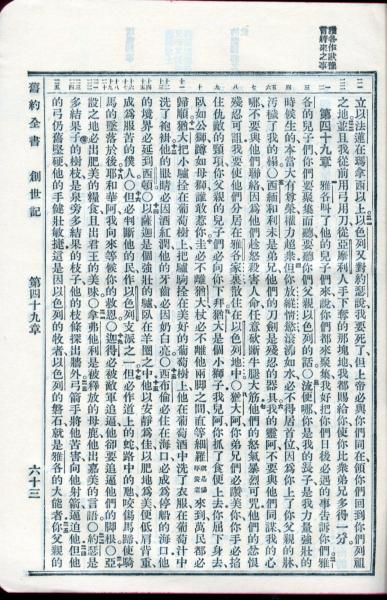 立以法蓮在瑪拿西以上以色列又對約瑟說我要死了但上帝必與你們同在領你們回到你們列祖
之地並且我從前用弓用刀從亞摩利人手下奪的那塊地我都賜給你使你比衆弟兄多得一分
第四十九章 雅各叫了他的兒子們來說你們都來聚集我好把你們日後必遇的事告訴你們雅
各的兒子們你們要聚集而聽要聽你們父親以色列的話○流便哪你是我的長子是我力量強壯的
時候生的本當大有尊榮權力超衆但你放縱情慾滾沸如水必不得居首位因爲你上了你父親的牀
汚穢了我的榻○西緬和利未是弟兄他們的刀劍是殘忍的器具我的靈阿不要與他們同謀我的心
哪不要與他們聯絡因爲他們趁怒殺害人命任意砍斷牛腿大筋他們的怒氣暴烈可咒他們的忿恨
殘忍可詛我要使他們分居在雅各家裏散住在以色列地中○猶大阿你弟兄們必讚美你你手必掐
住仇敵的頸項你父親的兒子們必向你下拜猶大是個小獅子我兒阿你抓了食便上去你屈下身去
臥如公獅蹲如母獅誰敢惹你圭必不離猶大杖必不離他兩腳之間直等細羅就是賜平安者來到萬民都必
歸順猶大把小驢拴在葡萄樹上把驢駒拴在美好的葡萄樹上他在葡萄酒中洗了衣服在葡萄汁中
洗了袍褂他的眼睛必因酒紅潤他的牙齒必因奶白亮○西布倫必住在海口必成爲停船的海口他
的境界必延到西頓○以薩迦是個強壯的驢臥在羊圈之中他以安靜爲佳以肥地爲美便低肩背重
成爲服苦的僕人○但必判斷他的民作以色列支派之一但必作道上的蛇路中的虺咬傷馬蹄使騎
馬的墜落於後耶和華阿我向來等候你的救恩○迦得必被敵軍追逼他卻要追逼他們的腳根○亞
設之地必出肥美的糧食且出君王的美味○拿弗他利是被釋放的母鹿他出嘉美的言語○約瑟是
多結果子的樹枝是泉旁多結果的枝子他的枝條探出牆外弓箭手將他苦害向他射箭逼迫他但他
的弓仍舊堅硬他的手健壯敏捷這是因以色列的牧者以色列的磐石就是雅各的大能者你父親的
舊約全書 創世記 第四十九章 六十三